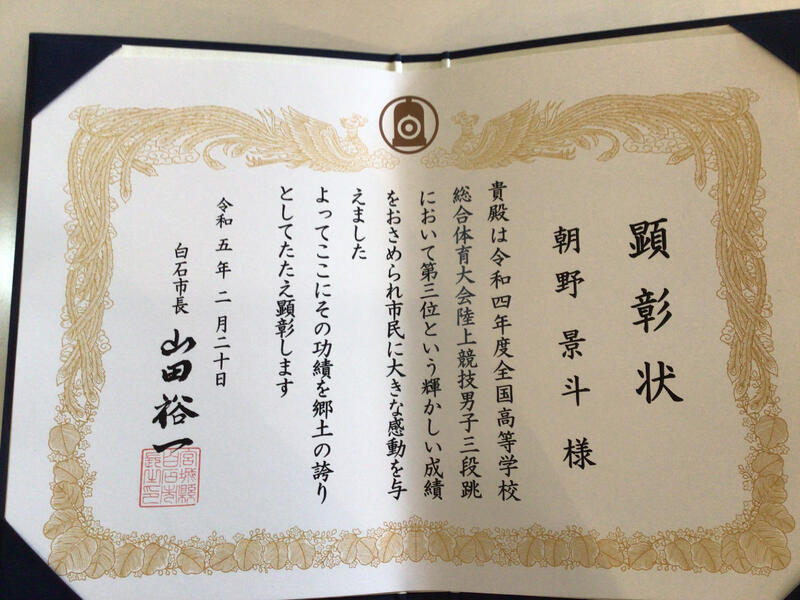 顕彰状
朝野景斗様
貴殿は令和四年度全国高等学校
総合体育大会陸上競技男子三段跳
において第三位という輝かしい成績
をおさめられ市民に大きな感動を与
えました
よってここにその功績を郷土の誇り
としてたたえ顕彰します
令和五年二月二十日
白石市長 山田裕一
宮城縣
白石市
長之印